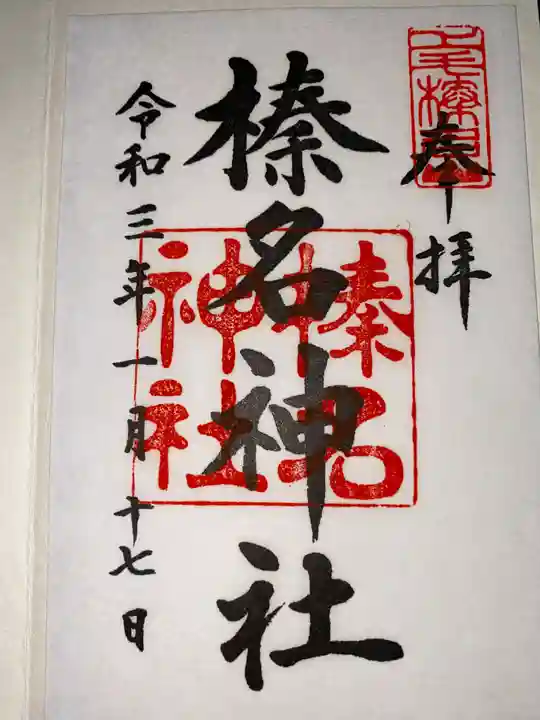 奉拝
榛名神社
榛名
神社
令和三年一月十七日